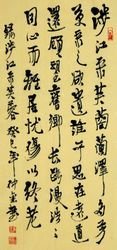 涉江采芙蓉蘭澤多芳
草采之欲遺誰所思在遠道
還顧望舊鄉長路漫浩浩
同心而離居憂傷以終老
錄涉江采芙蓉癸巳年